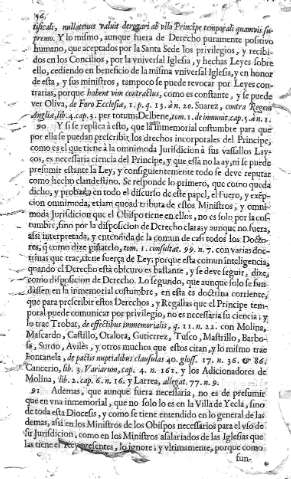 tificali, nullatenus valuit derogari ab vllo Principe temporali quamvis su-
premo. Y lo mismo, aunque fuera de Derecho puramente positivo
humano, que aceptados por la Santa Sede los privilegios, y recibi-
dos en los Concilios, por la vniversal Iglesia, y hechas Leyes sobre
ello, cediendo en beneficio de la misma vniversal Iglesia, y en honor
de esta, y sus ministros, tampoco se puede revocar por Leyes con-
trarias, porque habent vim contractus, como es constante, y se puede
ver Oliva, de Foro Ecclesiæ, 1. p. q. 13. à n. 20. Suarez, contra Regem
Angliæ, lib. 4. cap. 3. per totum; Delbene, tom. 1. de immunit. cap. 5. à n. 1.
90 Y si se replica à esto, que la immemorial costumbre para que
por ella se puedan prescribir los drechos incorporales del Principe,
como es el que tiene à la omnimoda Jurisdiccion à sus vassallos Lay-
cos, es necessaria ciencia del Principe, y que essa no la ay, ni se puede
presumir estante la Ley, y consiguientemente todo se deve reputar
como hecho clandestino. Se responde lo primero, que como queda
dicho, y probado en todo el discurso de este papel, el Fuero, y exêp-
cion omnimoda, etiam quoad tributa de estos Ministros, y omni-
moda Jurisdiccion que el Obispo tiene en ellos, no es solo por la cos-
tumbre, sino por la disposicion de Derecho clara; y aunque no fuera,
assi interpretada, y entendida de la comun de casi todos los Docto-
res, q como dize tom. 1. consultat. 99. n. 7. con varias doc-
trinas que trae, tiene fuerça de Ley; porque esta comun inteligencia,
quando el Derecho està obscuro es bastante, y se deve seguir, dize,
como disposicion de Derecho. Lo segundo, que aunque solo se fun-
dassen en la immemorial costumbre, en esta es doctrina corriente,
que para prescribir estos Derechos, y Regalias que el Principe tem-
poral puede comunicar por privilegio, no es necessaria su ciencia; y
lo trae Trobat, de effectibus immemorialis, q. 11. n. 22. con Molina,
Mascardo, Castillo, Otalora, Gutierrez, Tusco, Mastrillo, Barbo-
sa, Sordo, Aviles, y otros muchos que estos citan, y lo mismo trae
Fontanela, de pactis nuptialibus clausulas 40. gloss. 17. n. 36. & 86.
Cancerio, lib. 3. Variarum, cap. 4. n. 161. y los Adicionadores de
Molina, lib. 2. cap. 6. n. 16. y Larrea, allegat. 77. n. 9.
91 Ademas, que aunque fuera necessaria, no es de presumir
que en vna immemorial, que no solo lo es en la Villa de Yecla, sino
de toda esta Diocesis, y como se tiene entendido en lo general de las
demas, assi en los Ministros de los Obispos necessarios para el vso de
su Jurisdiccion, como en los Ministros assalariados de las Iglesias que
las tiene el Rey presentes, lo ignore; y vltimamente, porque como
fun-